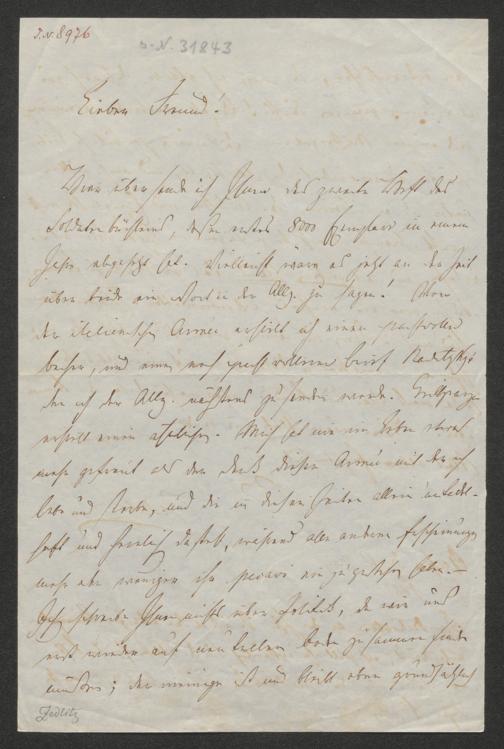 I.N. 8976
I.N. 31843
Lieber Freund!
Hier übersende ich Ihnen das zweite Heft des
Soldatenbüchleins, dessen erstes 8000 Exemplare in einem
Jahre abgesetzt hat. Vielleicht wäre es jetzt an der Zeit
über beide ein Wort in der Allg. zu sagen! Von
der italienischen Armee erhielt ich einen prachtvollen
Becher, und einen noch prachtvolleren Brief Radetzkys
den ich der Allg. nächstens zusenden werde. Grillparzer
erhielt einen ähnlichen. Mich hat nie im Leben etwas
mehr gefreut als der Dank dieser Armee mit der ich
lebe und sterbe, und die in diesen Zeiten allein untadel-
haft und herrlich dasteht, während alle anderen Erscheinungen
mehr oder weniger ihr peccavi einzugestehen haben. –
Ich schreibe Ihnen nichts über Politik, da wir uns
erst wieder auf neutralem Boden zusammen finden
müssen; der meinige ist und bleibt eben grundsätzlich
Zedlitz